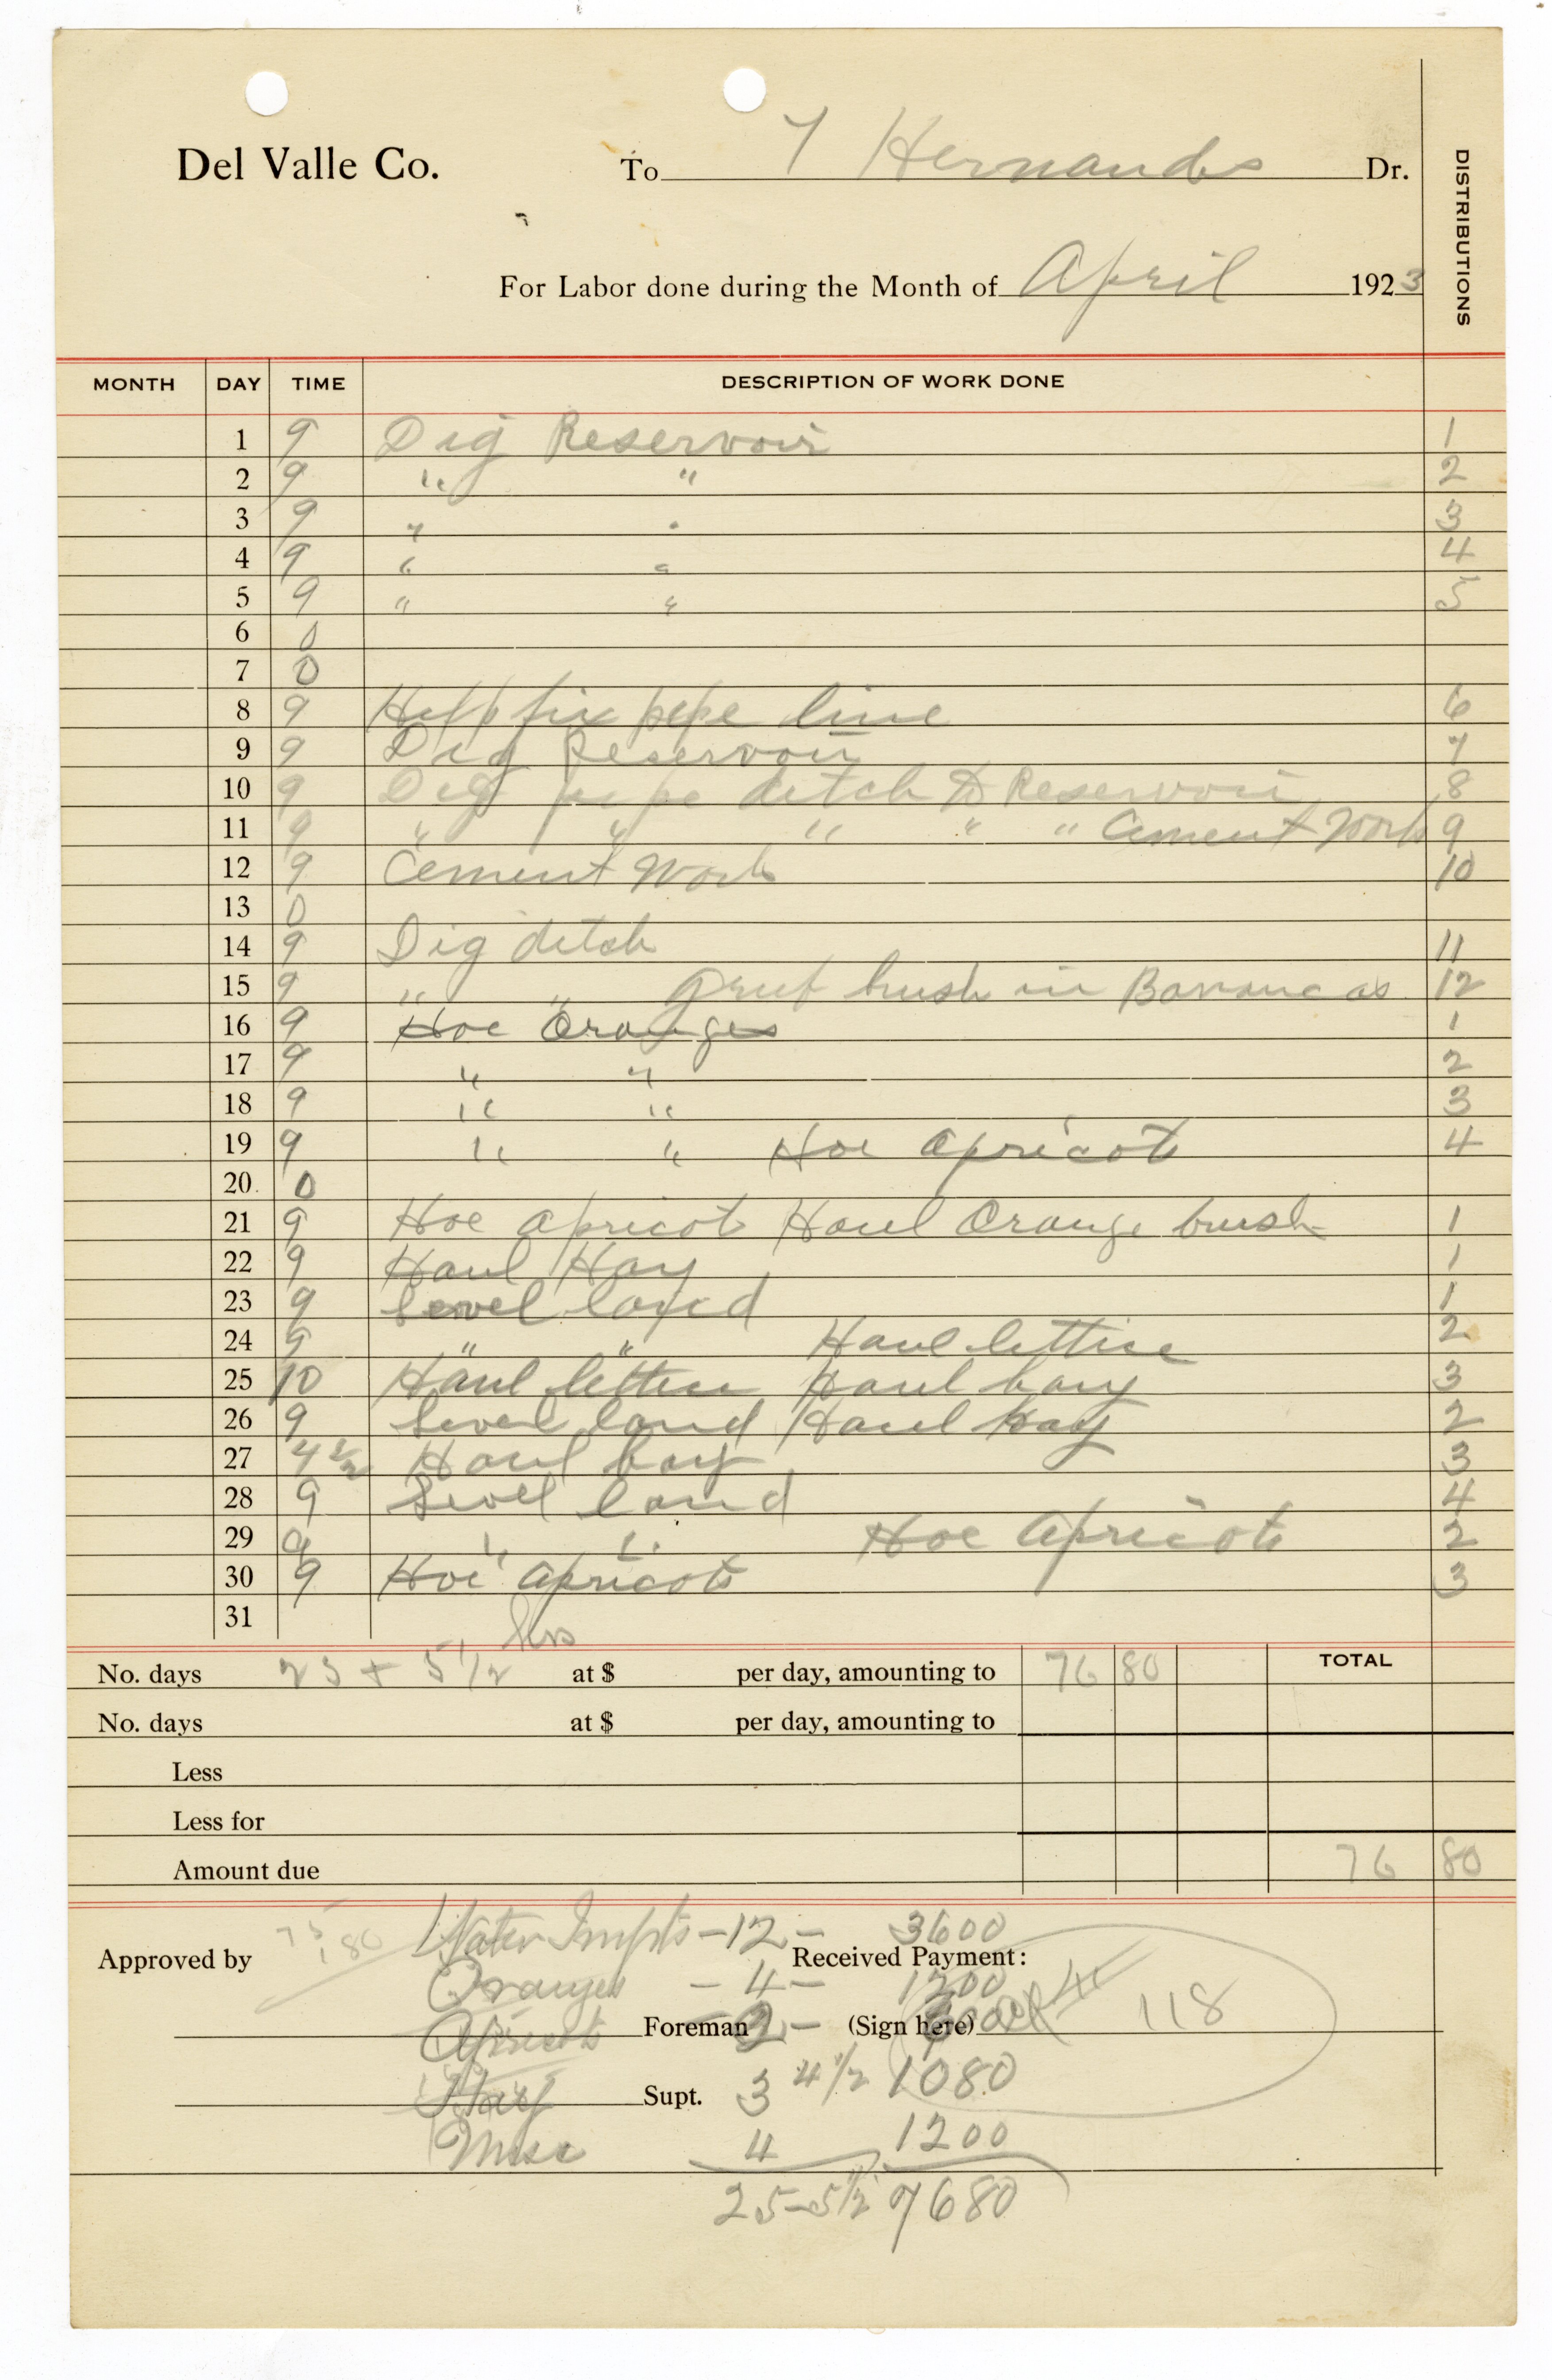 DISTRIBUTIONS
Del Valle Co. To Hernandes Dr.
For Labor done during the Month of April 1923
MONTH DAY TIME DESCRIPTION OF WORK DONE
1 9 Dig Reservoir 1
2 9 " " 2
3 9 " " 3
4 9 " " 4
5 9 " " 5
6 0
7 0
8 9 Help fix pipe line 6
9 9 Dig Reservoir 7
10 9 Dig pipe ditch to Reservoir 8
11 9 " " " " " Cement Work 9
12 9 Cement Work 10
13 0
14 9 Dig ditch 11
15 9 " " Grub brush in Barrancas 12
16 9 Hoe Oranges 1
17 9 " " 2
18 9 " " 3
19 9 " " Hoe Apricots 4
20 0
21 9 Hoe apricots Haul Orange brush 1
22 9 Haul Hay 1
23 9 Level land 1
24 9 " " Haul lettice 2
25 10 Haul lettice Haul hay 3
26 9 Level land Haul Hay 2
27 4 1/2 Haul hay 3
28 9 Level land 4
29 9 " " Hoe Apricots 2
30 9 Hoe apricots 3
31
No. days 25 + 5 1/2 hrs at $ per day, amounting to 76 80 TOTAL
No. days at $ per day, amounting to
Less
Less for
Amount due 76 80
Water Impts - 12 - 3600
Approved by Received Payment:
Oranges - 4 - 1200
Apricots Foreman 2 - (Sign here) 118
Hay Supt. 3 4 1/2 1080
Misc 4 1200
25 - 5 1/2 7680